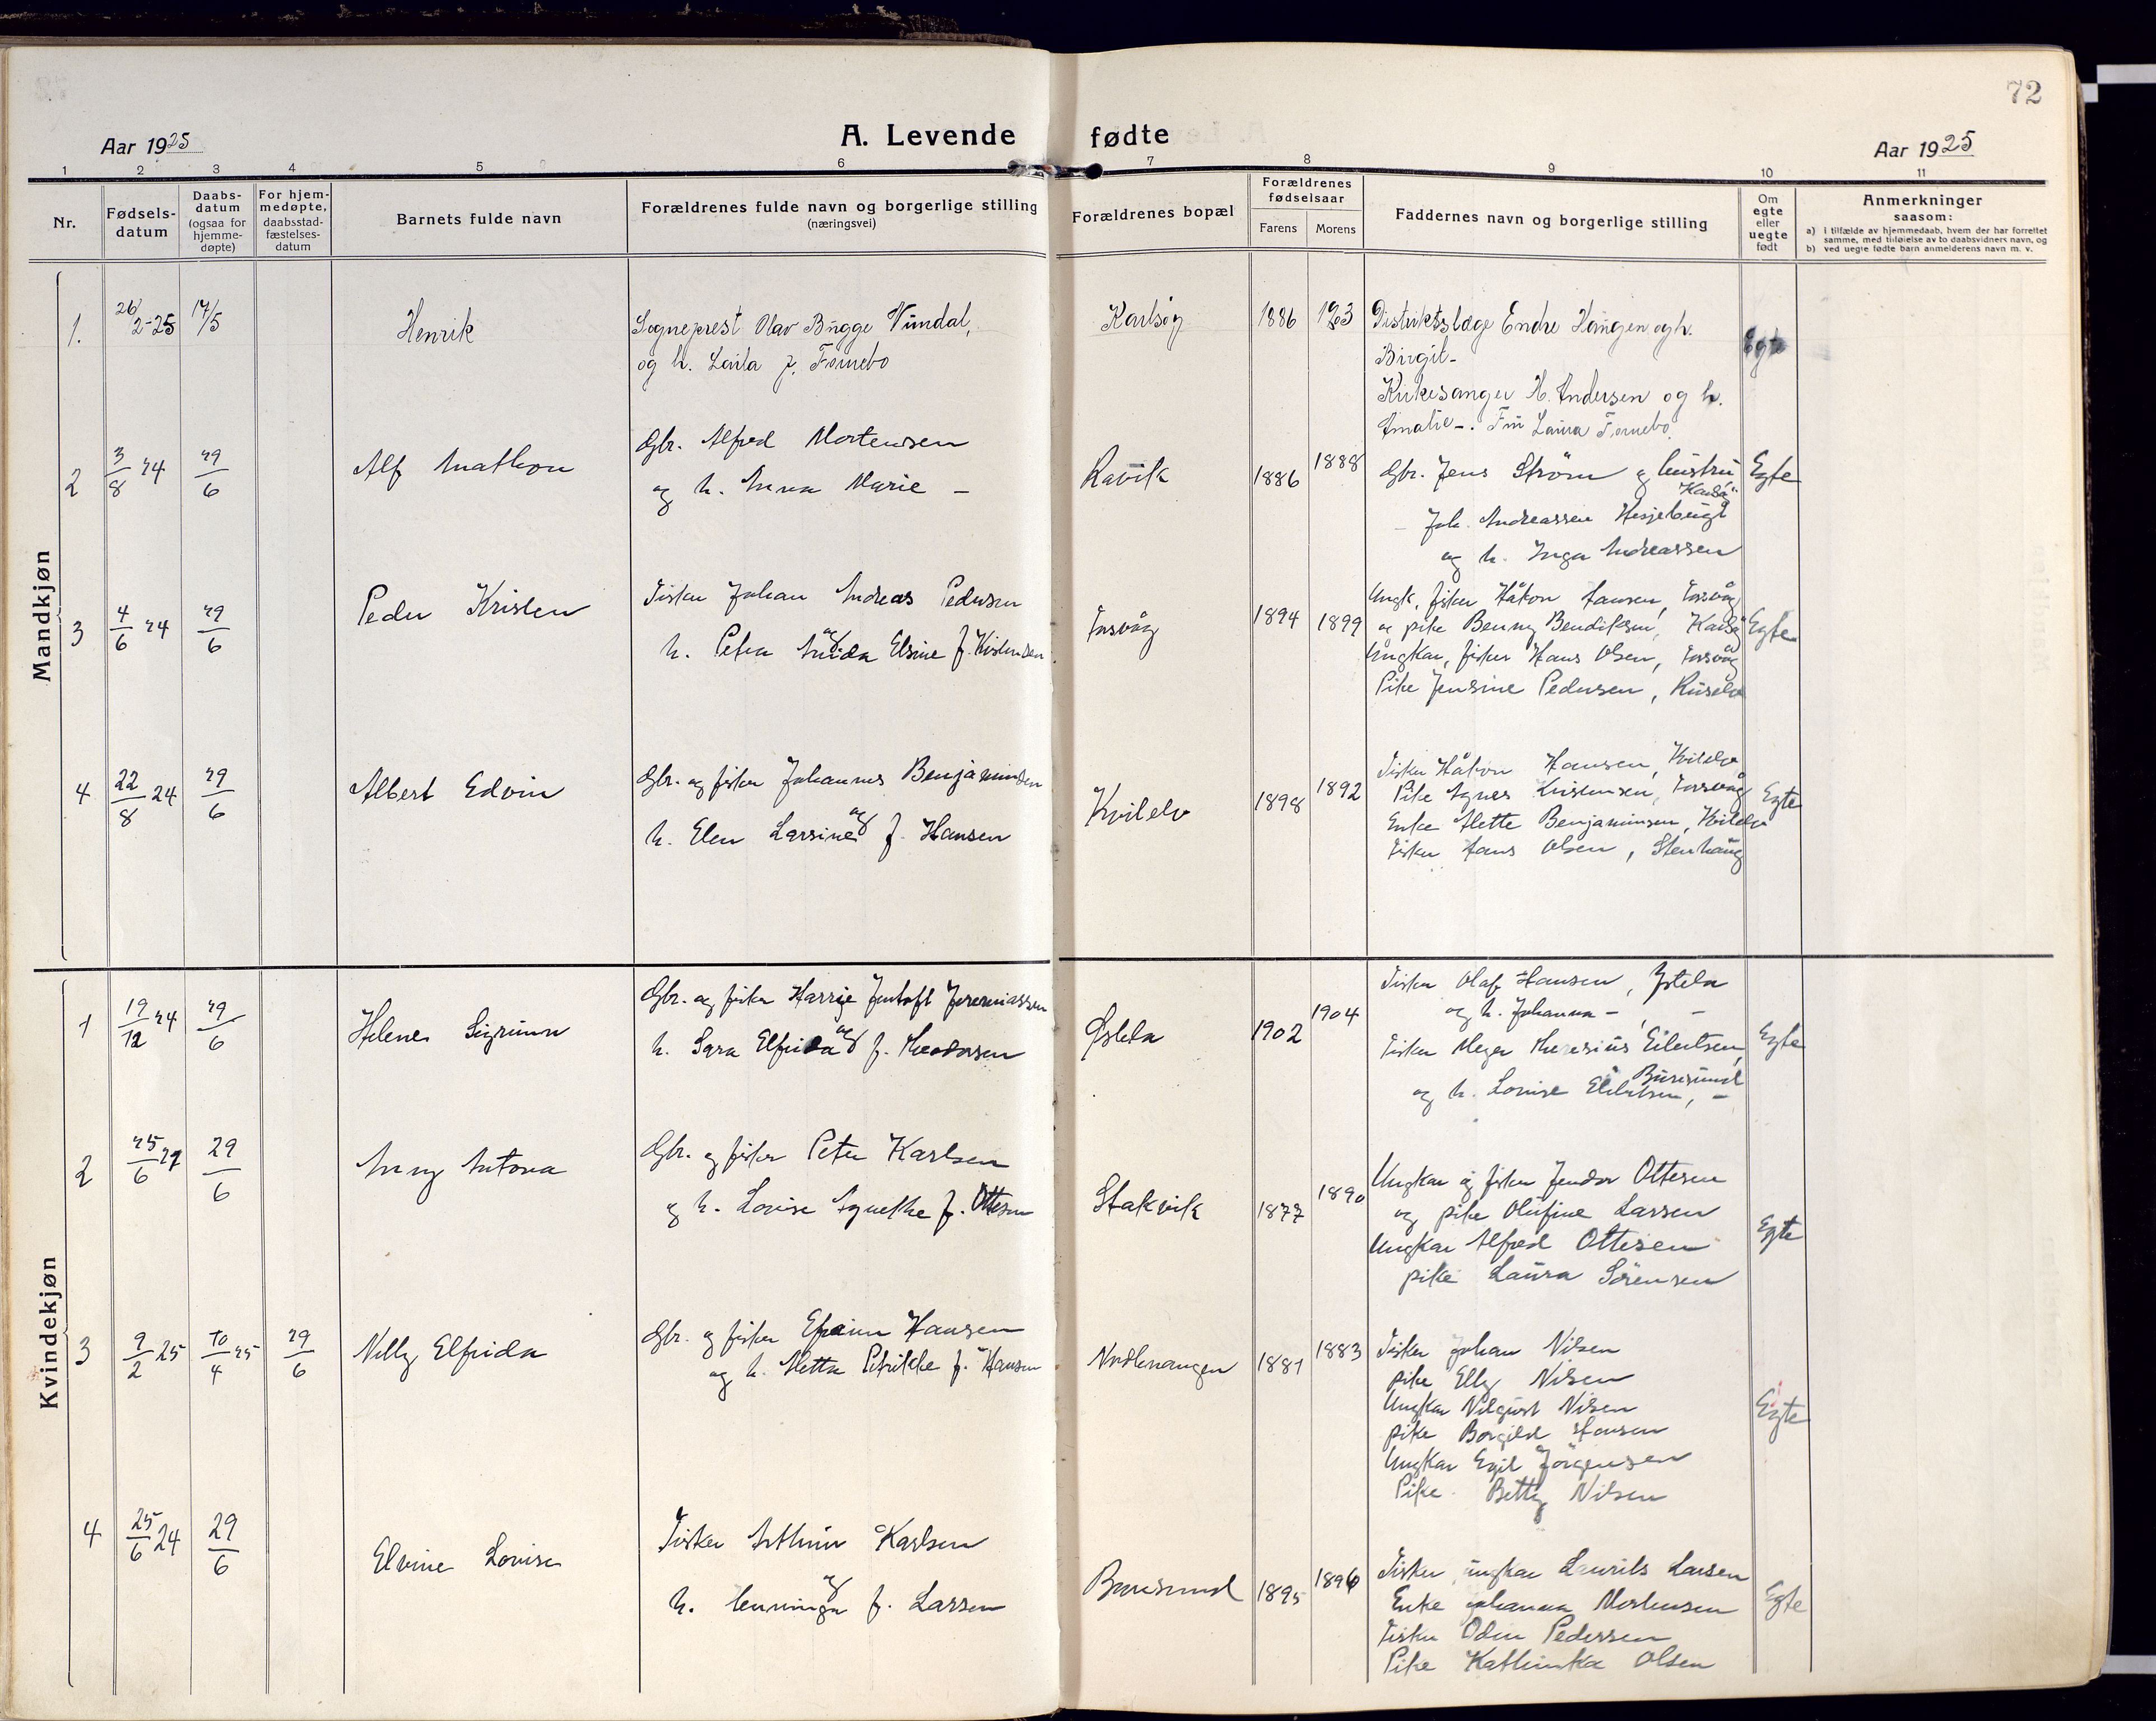 72
Aar 1925
A. Levende fødte
Aar 1925
1 2 3 4 5 6 7 8 9 10 11
Nr.
Fødsels-
datum
Daabs-
datum
(ogsaa for
hjemme-
døpte)
For hjem-
medøpte,
daabsstad-
fæstelses-
datum
Barnets fulde navn
Forældrenes fulde navn og borgerlige stilling
(næringsvei)
Forældrenes bopæl
Forældrenes
fødselsaar
Farens Morens
Faddernes navn og borgerlige stilling
Om
egte
eller
uegte
født
Anmerkninger
saasom:
a) i tilfælde av hjemmedaab, hvem der har forrettet
samme, med tilføielse av to daabsvidners navn, og
b) ved uegte fødte barn anmelderens navn m. v.
Mandkjøn
1. 26/2-25 17/5
Henrik
Sogneprest Olav Bugge Vundal,
og h. Laila f. Fornebo
Karlsøy
1886
Distriktslæge Endre Haugen og h.
Birgit -
Kirkesanger H. Andersen og h.
Amalie -. Frü Laura Fornebo
Egte
2 3/8 24 29/6
Alf Mathon
Gbr. Alfred Mortensen
og h. Anna Marie -
Ravik
1886 1888
Gbr. Jens Strøm og hustru
Karlsø
- Joh. Andreassen Hesjebugt
og h. Inga Andreassen
Egte
3 4/6 24 29/6
Peder Kristen
Fisker Johan Andreas Pedersen
og
h. Petra Anida Elsine f. Kristensen
Torsvåg
1894 1899
Ungk. fisker Håkon Hansen, Torsvåg
og pike Benny Bendiksen, Karlsø
Ungkar, fisker Hans Olsen, Torsvåg
Pike Jensine Pedersen, Rüselv
Egte
4 22/8 24 29/6
Albert Edvin
Gbr. og fisker Johannes Benjaminsen
og
h. Elen Larsine f. Hansen
Kvitelv
1898 1892
Fisker Håkon Hansen, Kvitelv
Pike Agnes Kristensen, Torsvåg
Enke Mette Benjaminsen, Kvitelv
Fisker Hans Olsen, Stenhaug
Egte
Kvindekjøn
1 19/12 24 29/6
Helene Sigrunn
Gbr. og fisker Harrie Jentoft Jeremiassen
og
h. Sara Elfrida f. Theodorsen
Østela
1902 1904
Fisker Olaf Hansen, Ystela
og h. Johanna - , -
Fisker Meyer Theresius Eilertsen,
Büresund
og h. Lovise Eilertsen, -
Egte
2 25/6 29/6
Anny Antona
Gbr. og fisker Peter Karlsen
og h. Lovise Agnethe f. Ottesen
Stakvik
1877 1890
Ungkar og fisker Jendor Ottesen
og pike Olufine Larsen
Ungkar Alfred Ottesen
pike Laura Sörensen
Egte
3 9/2 25 10/4 25 29/6
Nelly Elfrida
Gbr. og fisker Efraim Hansen
og h. Mette Petrikke f. Hansen
Nordlenangen
1881 1883
Fisker Johan Nilsen
pike Elly Nilsen
Ungkar Vilgurt Nilsen
pike Borgild Hansen
Ungkar Egil Jörgensen
Pike Betty Nilsen
Egte
4 25/6 24 29/6
Elvine Lovise
Fisker Arthur Karlsen
og
h. Henninga f. Larsen
Burøsund
1895 1896
Fisker, ungkar Laurits Larsen
Enke Johanna Mortensen
Fisker Odin Pedersen
Pike Kathinka Olsen
Egte